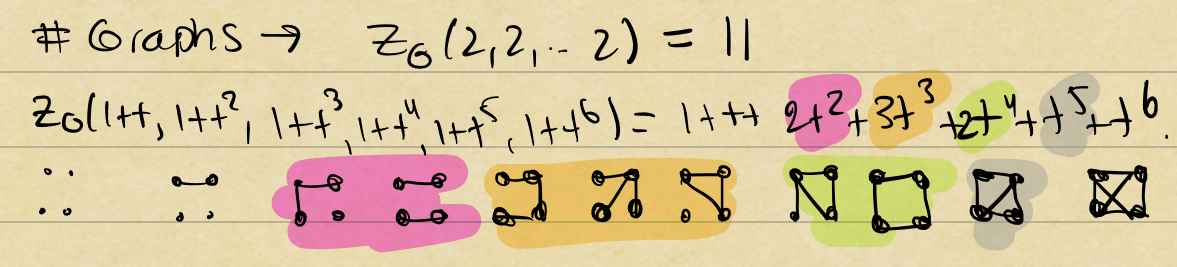 # Graphs → Z_G(2,2,.. 2) = 11
Z_G(1+t, 1+t², 1+t³, 1+t⁴, 1+t⁵, 1+t⁶) = 1+t+ 2t²+3t³+2t⁴+t⁵+t⁶.